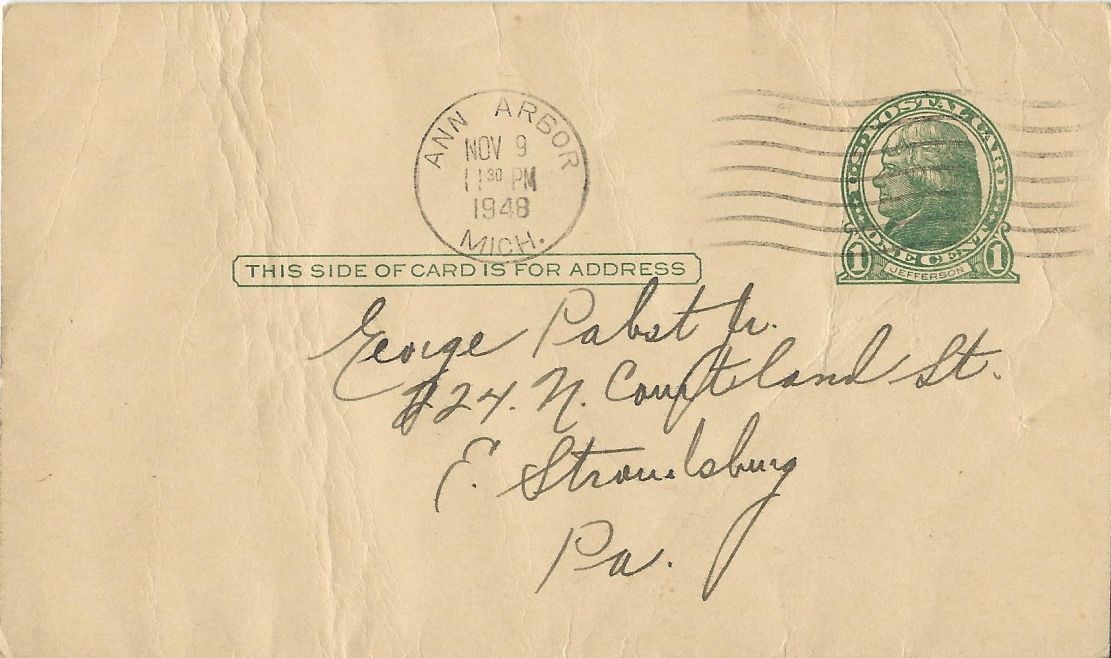 ANN ARBOR
NOV 9
11 30 PM
1948
MICH.
U.S. POSTAL CARD
ONE CENT
1 JEFFERSON 1
THIS SIDE OF CARD IS FOR ADDRESS
George Pabst Jr.
N. Courtland St.
E. Stroudsburg
Pa.